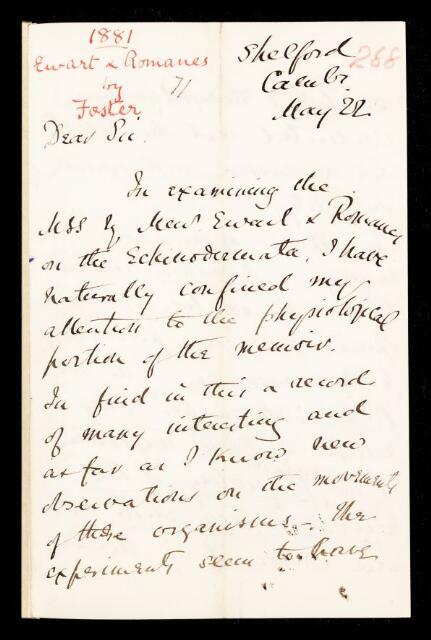 1881
Ewart & Romanes
by
Foster
71
Shelford
268
Camb:
May 22
Dear Sir.
In examining the
MSS of Mess Ewart & Romanes
on the Echinodermata, I have
naturally confined my
attention to the physiological
portion of the memoir.
In find in this a record
of many interesting and
as far as I know new
observations on the movements
of these organisms. The
experiments seem to have